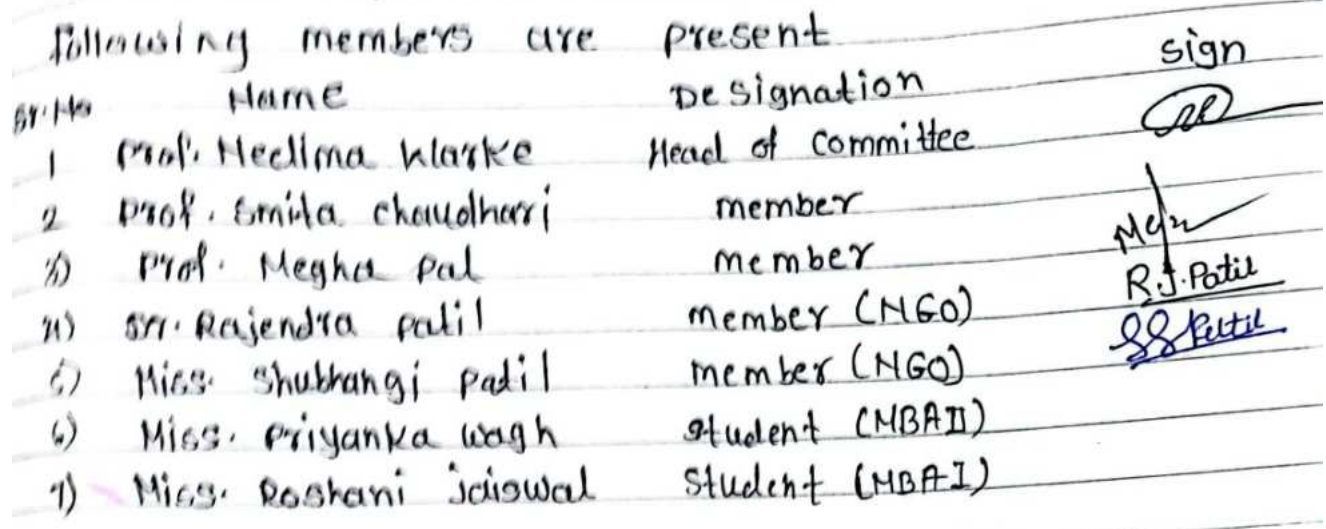 following members are present
Sr.No Name Designation sign
1 Prof. Neelima Warke Head of Committee
2 Prof. Smita chaudhari member
3) Prof. Megha Pal member
4) Sri. Rajendra patil member (NGO) R.J.Patil
5) Miss. Shubhangi patil member (NGO) SSPatil
6) Miss. Priyanka wagh student (MBAII)
7) Miss. Roshani jaiswal Student (MBAI)